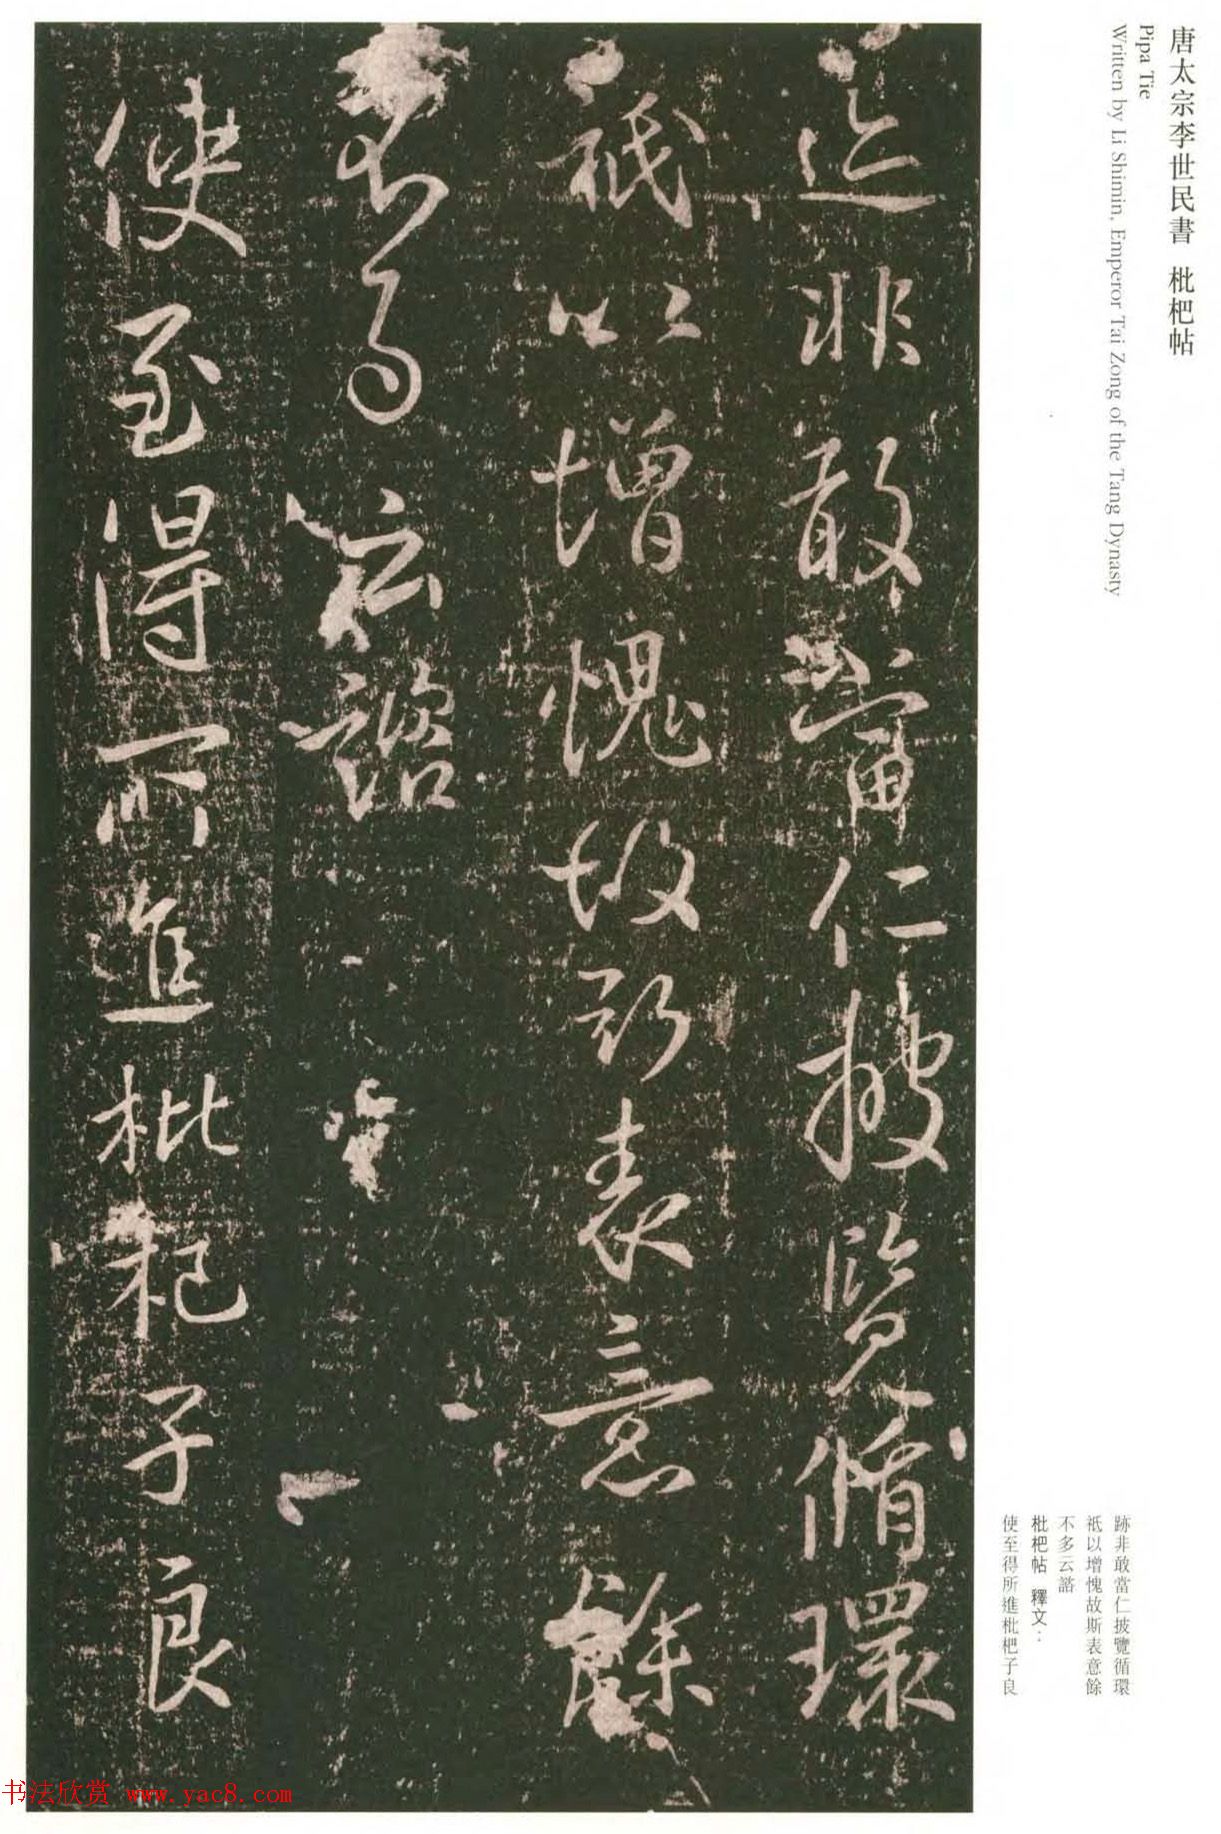 唐太宗李世民書 枇杷帖
Pipa Tie
Written by Li Shimin, Emperor Tai Zong of the Tang Dynasty
迹非敢當仁披覽循環
祇以增愧故斯表意餘
不多云諮
使至得所進枇杷子良
跡非敢當仁披覽循環
祇以增愧故斯表意餘
不多云諮
枇杷帖 釋文:
使至得所進枇杷子良
书法欣赏 www.yac8.com